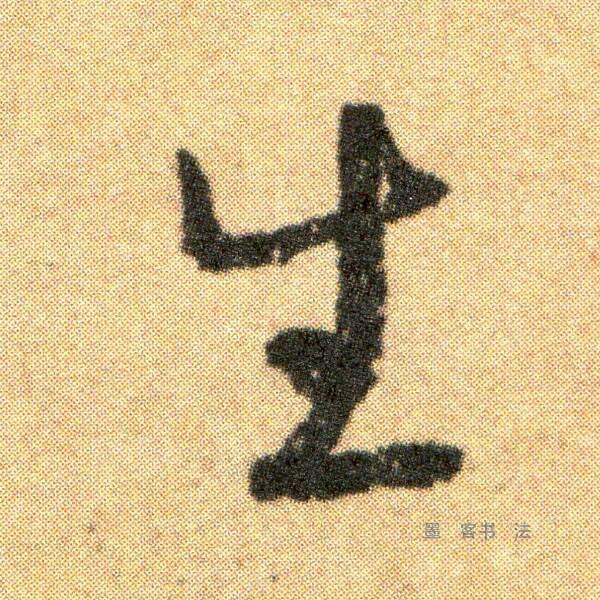 生
墨 客书 法